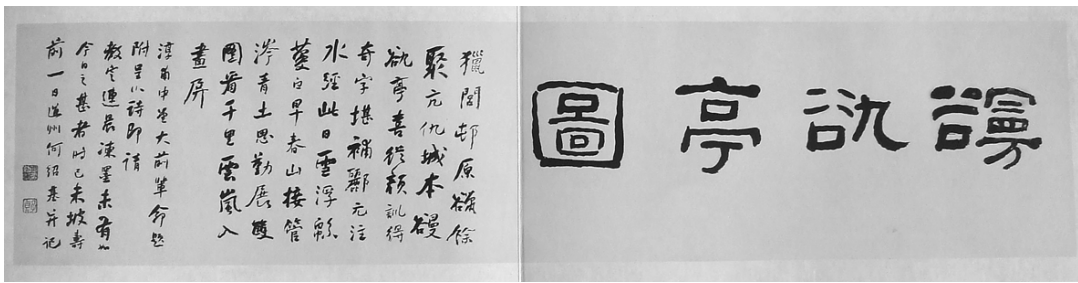 䜱䜪亭圖
獵閭邨原餘
聚亢仇城本䜱
䜪亭喜從顏訓得
奇字堪補酈元注
水經此日雲浮緜
蔓白早春山接管
涔青土思勤展雙
圖看千里雲嵐入
畫屏
淳甫中堂大前輩命題
附呈小詩即請
教定連晨凍墨未有如
今日之甚者時己未坡壽
前一日道州何紹基并記